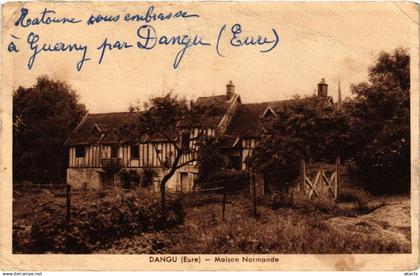 Ratoune vous embrasse
à Guerny par Dangu (Eure)
DANGU (Eure) — Maison Normande
www.delcampe.net